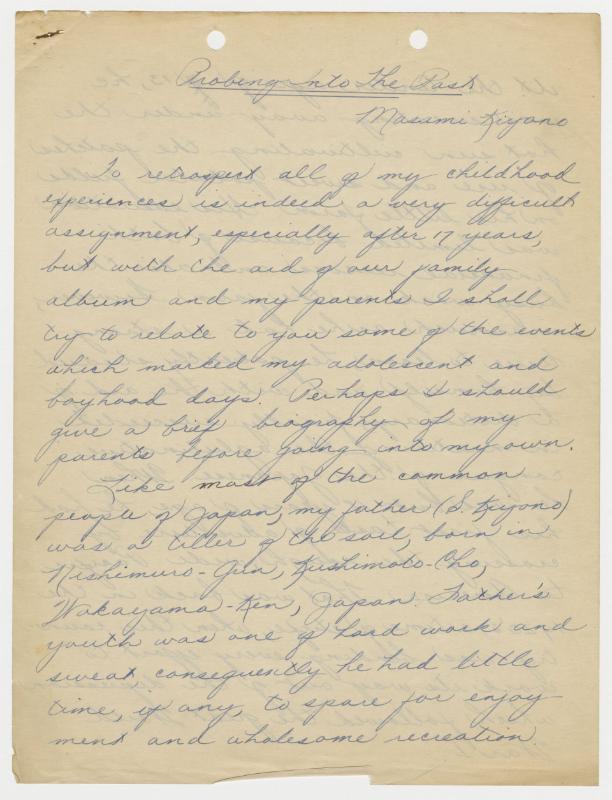 Probing into The Past
Masami Kiyono
To retrospect all of my childhood
experiences is indeed a very difficult
assignment, especially after 17 years,
but with the aid of our family
album and my parents I shall
try to relate to you some of the events
which marked my adolescent and
boyhood days. Perhaps I should
give a brief biography of my
parents before going into my own.
Like most of the common
people of Japan, my father (S. Kiyono)
was a tiller of the soil, born in
Nishimuro-Gun, Kushimoto-Cho,
Wakayama-Ken, Japan. Father's
youth was one of hard work and
sweat consequently he had little
time, if any, to spare for enjoy-
ment and wholesome recreation.